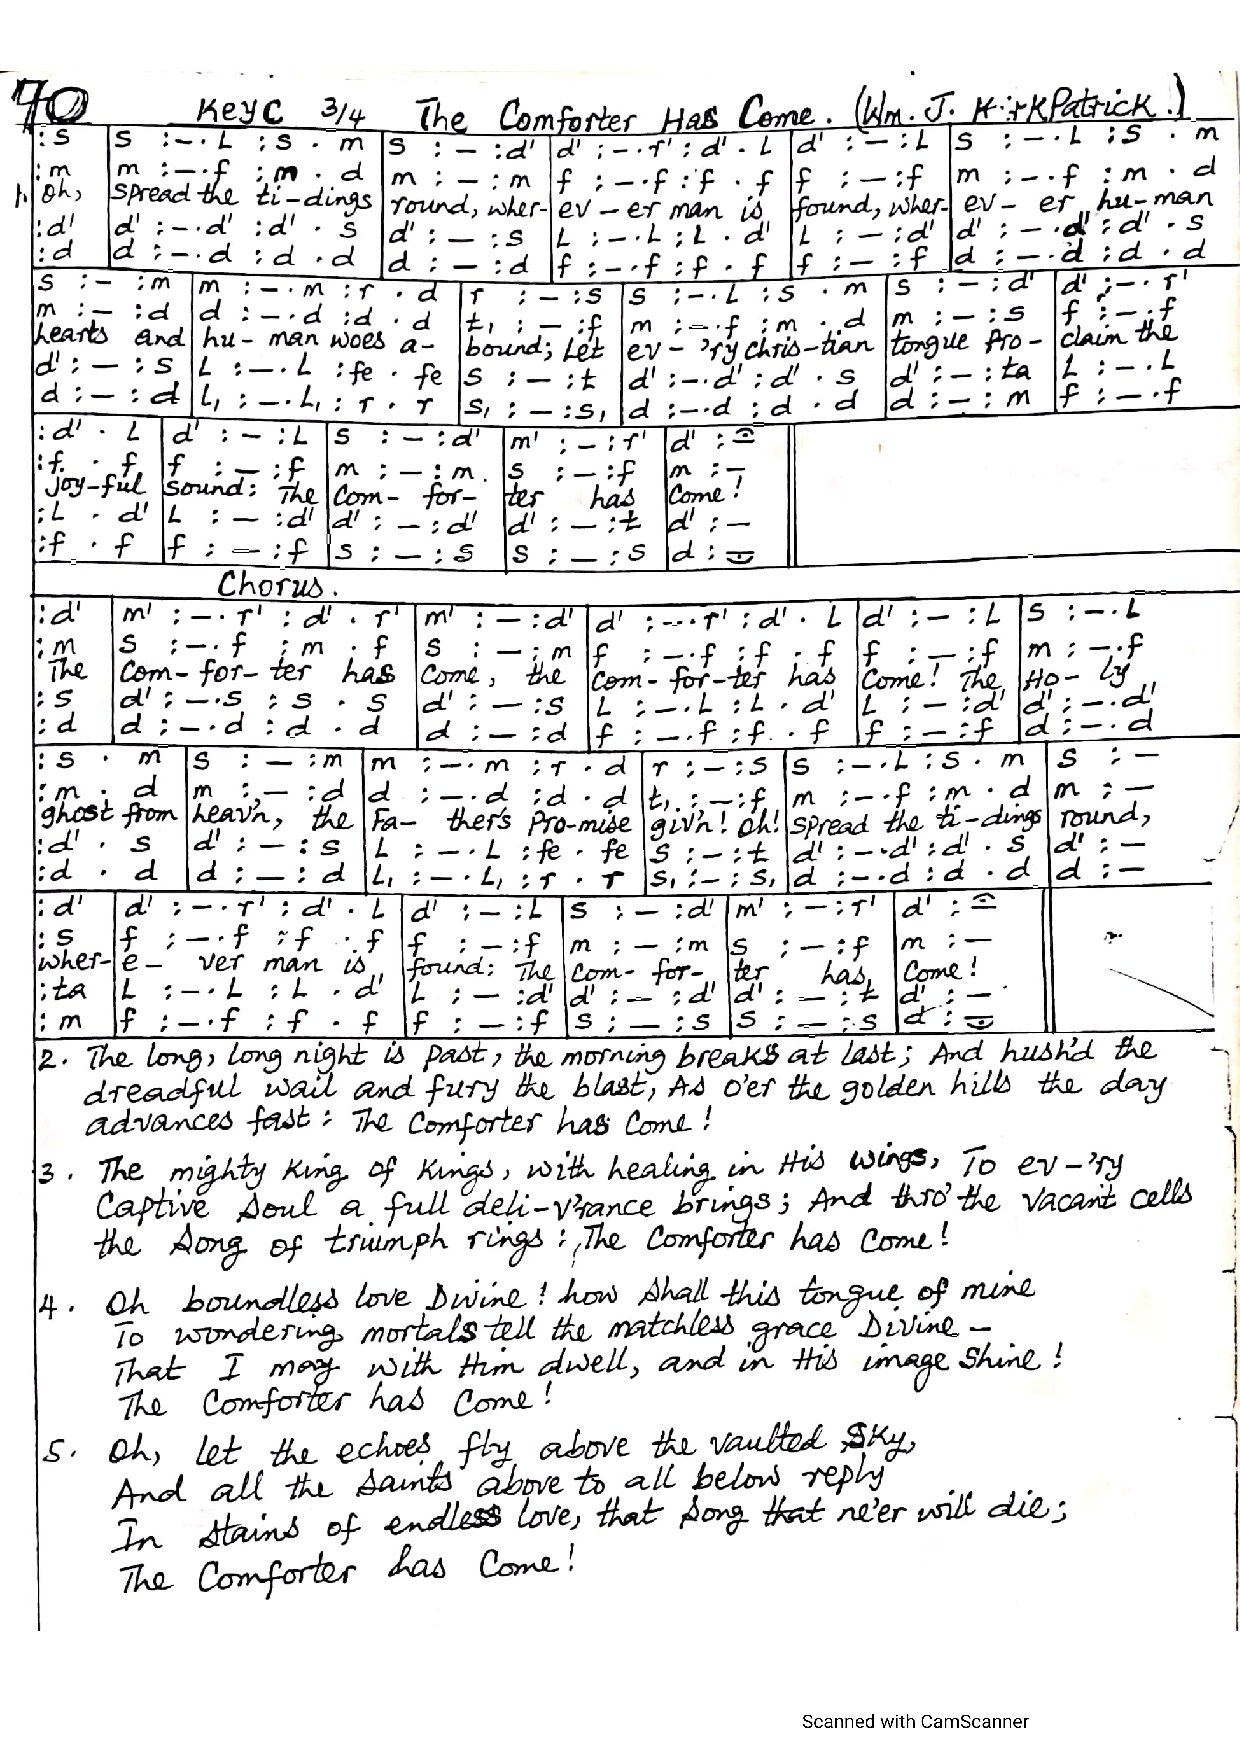 70 Key C 3/4 The Comforter Has Come. (Wm. J. KirkPatrick.)
:s | s :-.L :s . m | s :- :d' | d' :-.r' :d' . L | d' :- :L | s :-.L :s . m
:m | m :-.f :m . d | m :- :m | f :-.f :f . f | f :- :f | m :-.f :m . d
1. Oh, | spread the ti-dings | round, wher- | ev-er man is | found, wher- | ev-er hu-man
:d' | d' :-.d' :d' . s | d' :- :s | L :-.L :L . d' | L :- :d' | d' :-.d' :d' . s
:d | d :-.d :d . d | d :- :d | f :-.f :f . f | f :- :f | d :-.d :d . d
s :- :m | m :-.m :r . d | r :- :s | s :-.L :s . m | s :- :d' | d' :-.r'
m :- :d | d :-.d :d . d | t, :- :f | m :-.f :m . d | m :- :s | f :-.f
hearts and | hu-man woes a- | bound; Let | ev-'ry Chris-tian | tongue Pro- | claim the
d' :- :s | L :-.L :fe . fe | s :- :t | d' :-.d' :d' . s | d' :- :ta | L :-.L
d :- :d | L, :-.L, :r . r | s, :- :s, | d :-.d :d . d | d :- :m | f :-.f
:d' . L | d' :- :L | s :- :d' | m' :- :r' | d' :-
:f . f | f :- :f | m :- :m | s :- :f | m :-
Joy-ful | Sound: The | Com-for- | ter has | Come!
:L . d' | L :- :d' | d' :- :d' | d' :- :t | d' :-
:f . f | f :- :f | s :- :s | s :- :s | d :-
Chorus.
:d' | m' :-.r' :d' . r' | m' :- :d' | d' :-.r' :d' . L | d' :- :L | s :-.L
:m | s :-.f :m . f | s :- :m | f :-.f :f . f | f :- :f | m :-.f
The | Com-for-ter has | Come, the | Com-for-ter has | Come! The | Ho-ly
:s | d' :-.s :s . s | d' :- :s | L :-.L :L . d' | L :- :d' | d' :-.d'
:d | d :-.d :d . d | d :- :d | f :-.f :f . f | f :- :f | d :-.d
:s . m | s :- :m | m :-.m :r . d | r :- :s | s :-.L :s . m | s :-
:m . d | m :- :d | d :-.d :d . d | t, :- :f | m :-.f :m . d | m :-
ghost from | heav'n, the | Fa-ther's Pro-mise | giv'n! Oh! | spread the ti-dings | round,
:d' . s | d' :- :s | L :-.L :fe . fe | s :- :t | d' :-.d' :d' . s | d' :-
:d . d | d :- :d | L, :-.L, :r . r | s, :- :s, | d :-.d :d . d | d :-
:d' | d' :-.r' :d' . L | d' :- :L | s :- :d' | m' :- :r' | d' :-
:s | f :-.f :f . f | f :- :f | m :- :m | s :- :f | m :-
wher- | e-ver man is | found: The | Com-for- | ter has | Come!
:ta | L :-.L :L . d' | L :- :d' | d' :- :d' | d' :- :t | d' :-
:m | f :-.f :f . f | f :- :f | s :- :s | s :- :s | d :-
2. The long, long night is Past, the morning breaks at last; And hush'd the
dreadful wail and fury the blast, As o'er the golden hills the day
advances fast: The Comforter has Come!
3. The mighty King of Kings, with healing in His wings, To ev-'ry
Captive Soul a full deli-v'rance brings; And thro' the Vacant cells
the Song of triumph rings: The Comforter has Come!
4. Oh boundless love Divine! how Shall this tongue of mine
To wondering mortals tell the matchless grace Divine -
That I may with Him dwell, and in His image Shine!
The Comforter has Come!
5. Oh, let the echoes fly above the vaulted Sky,
And all the Saints above to all below reply
In Stains of endless love, that Song that ne'er will die;
The Comforter has Come!
Scanned with CamScanner